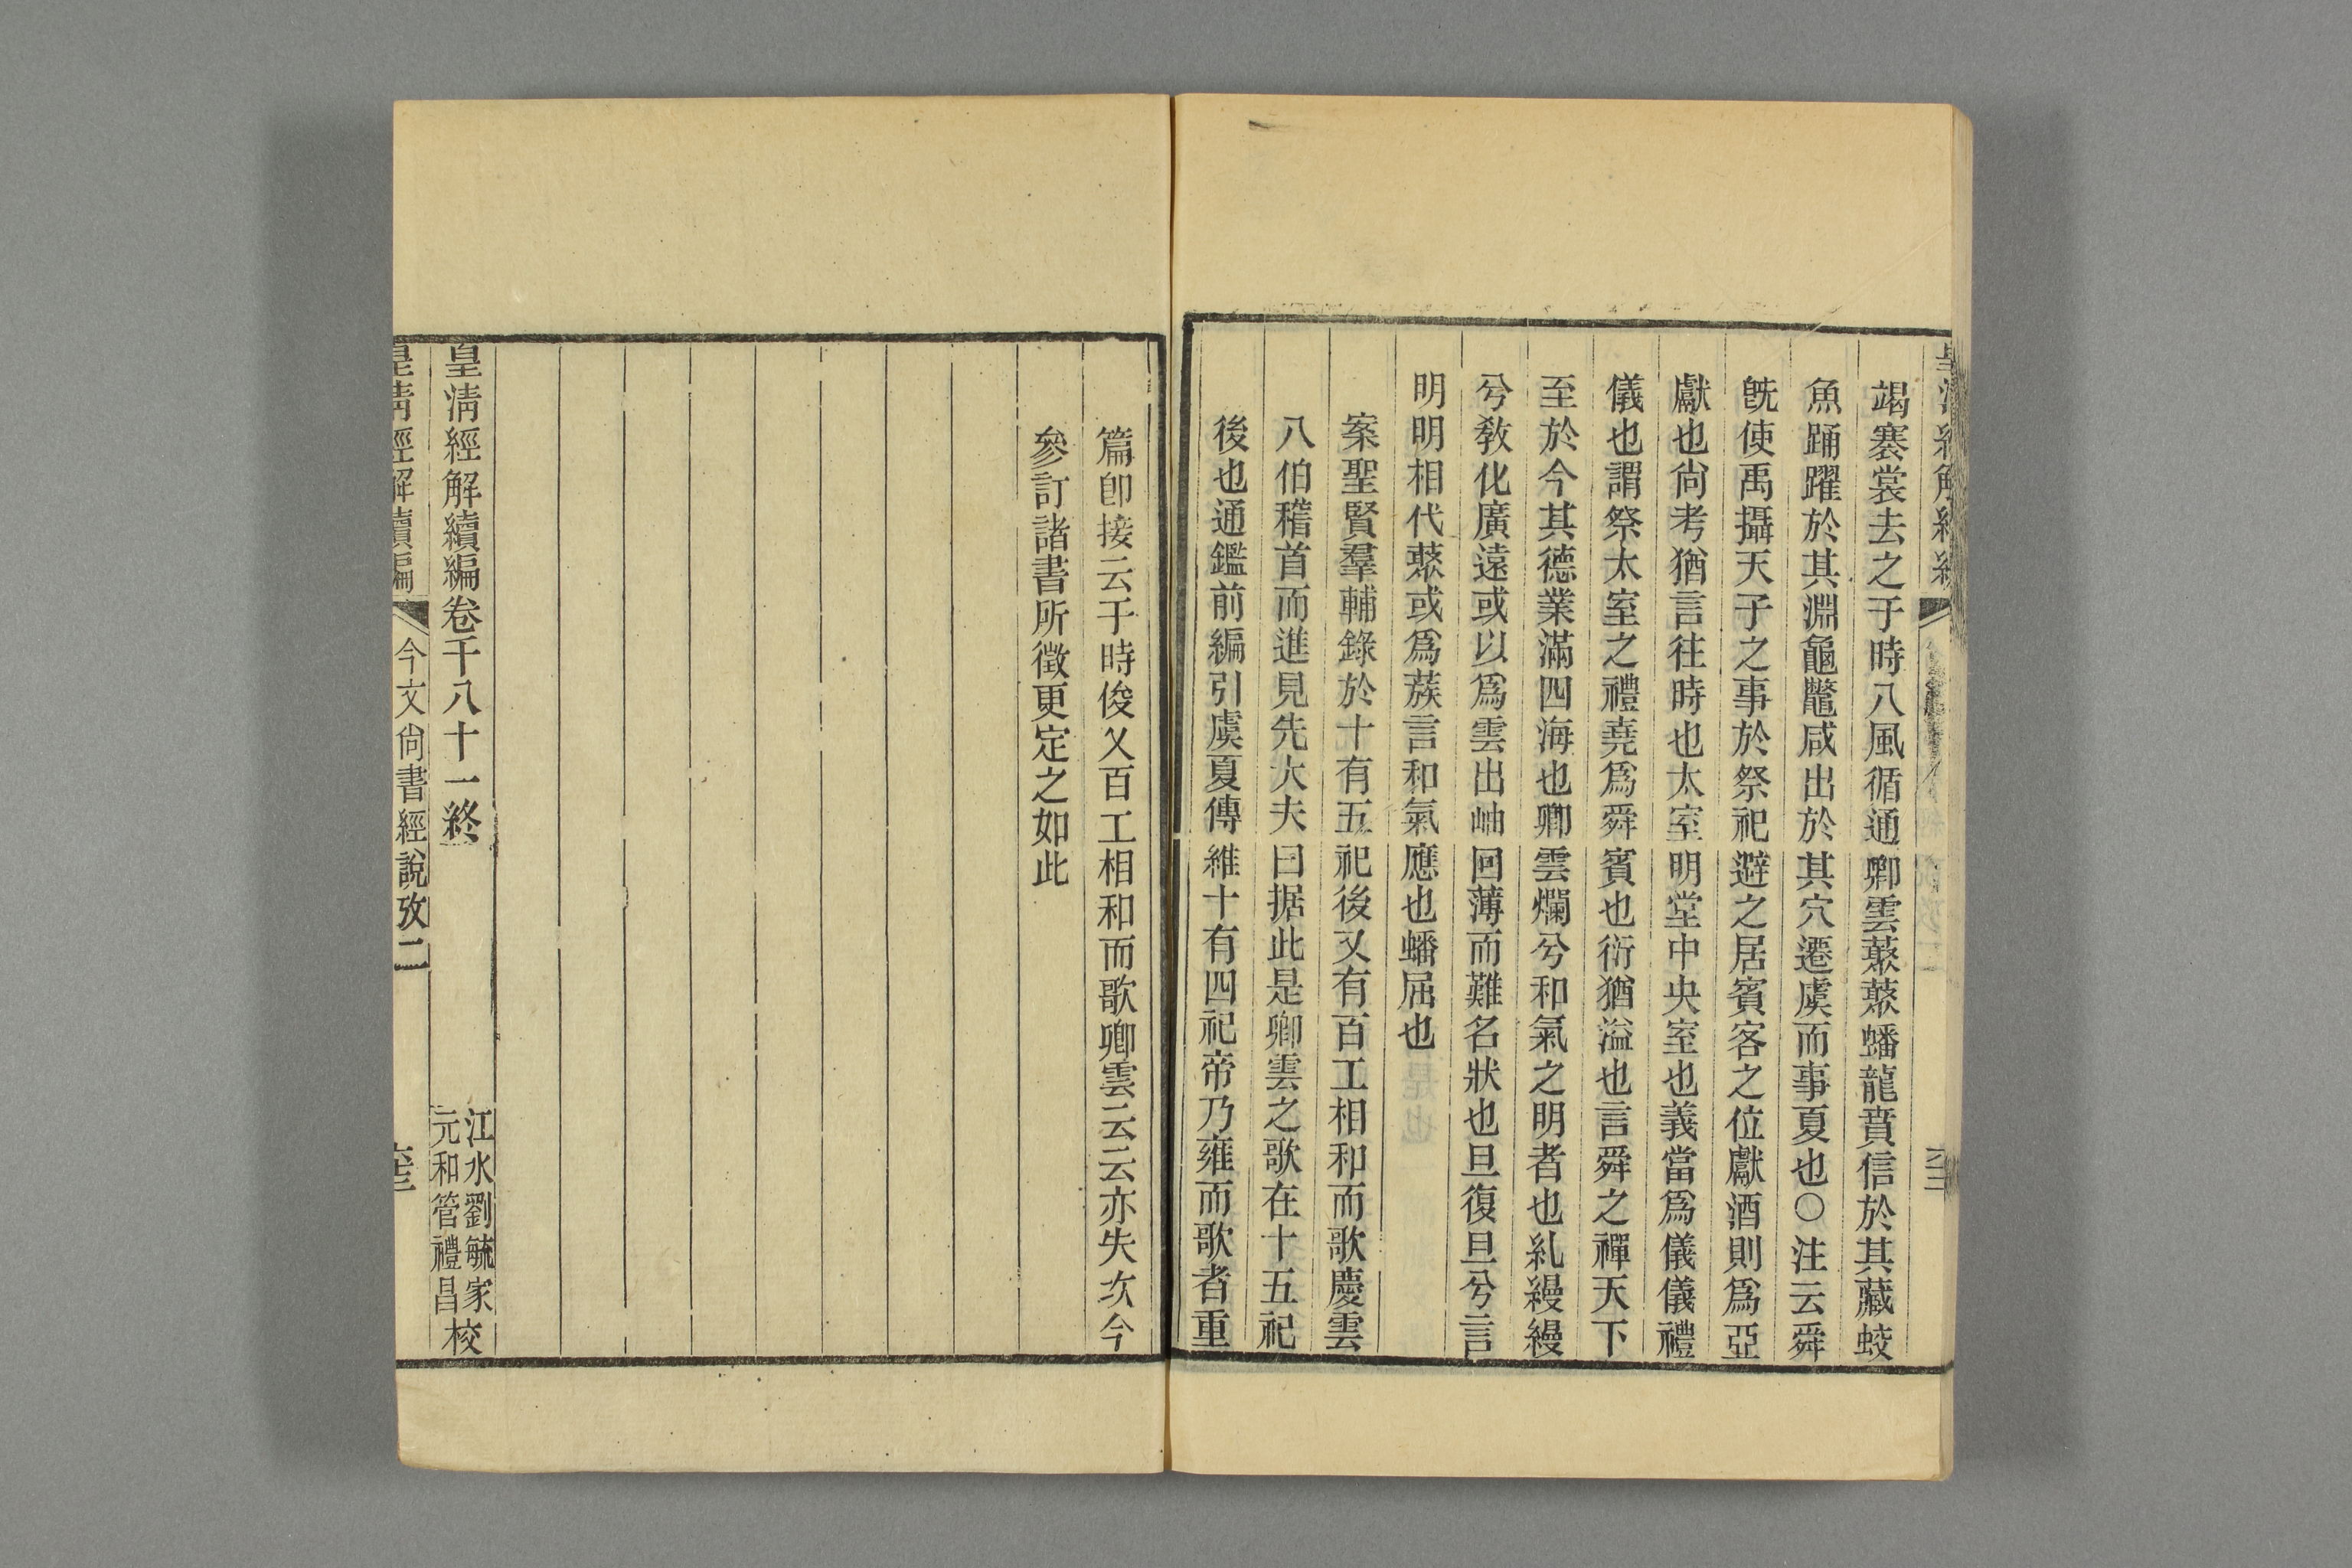 竭褰裳去之于時八風循通卿雲藂藂蟠龍賁信於其藏蛟
魚踊躍於其淵龜鼈咸出於其穴遷虞而事夏也○注云舜
旣使禹攝天子之事於祭祀避之居賓客之位獻酒則爲亞
獻也尙考猶言往時也太室明堂中央室也義當爲儀儀禮
儀也謂祭太室之禮堯爲舜賓也衍猶溢也言舜之禪天下
至於今其德業滿四海也卿雲爛兮和氣之明者也糺縵縵
兮敎化廣遠或以爲雲出岫回薄而難名狀也旦復旦兮言
明明相代藂或爲蔟言和氣應也蟠屈也
案聖賢羣輔錄於十有五祀後又有百工相和而歌慶雲
八伯稽首而進見先大夫曰据此是卿雲之歌在十五祀
後也通鑑前編引虞夏傳維十有四祀帝乃雍而歌者重
篇卽接云于時俊乂百工相和而歌卿雲云云亦失次今
參訂諸書所徵更定之如此
皇淸經解續編卷千八十一終
江水劉毓家
元和管禮昌校
皇淸經解續編
今文尙書經說攷二